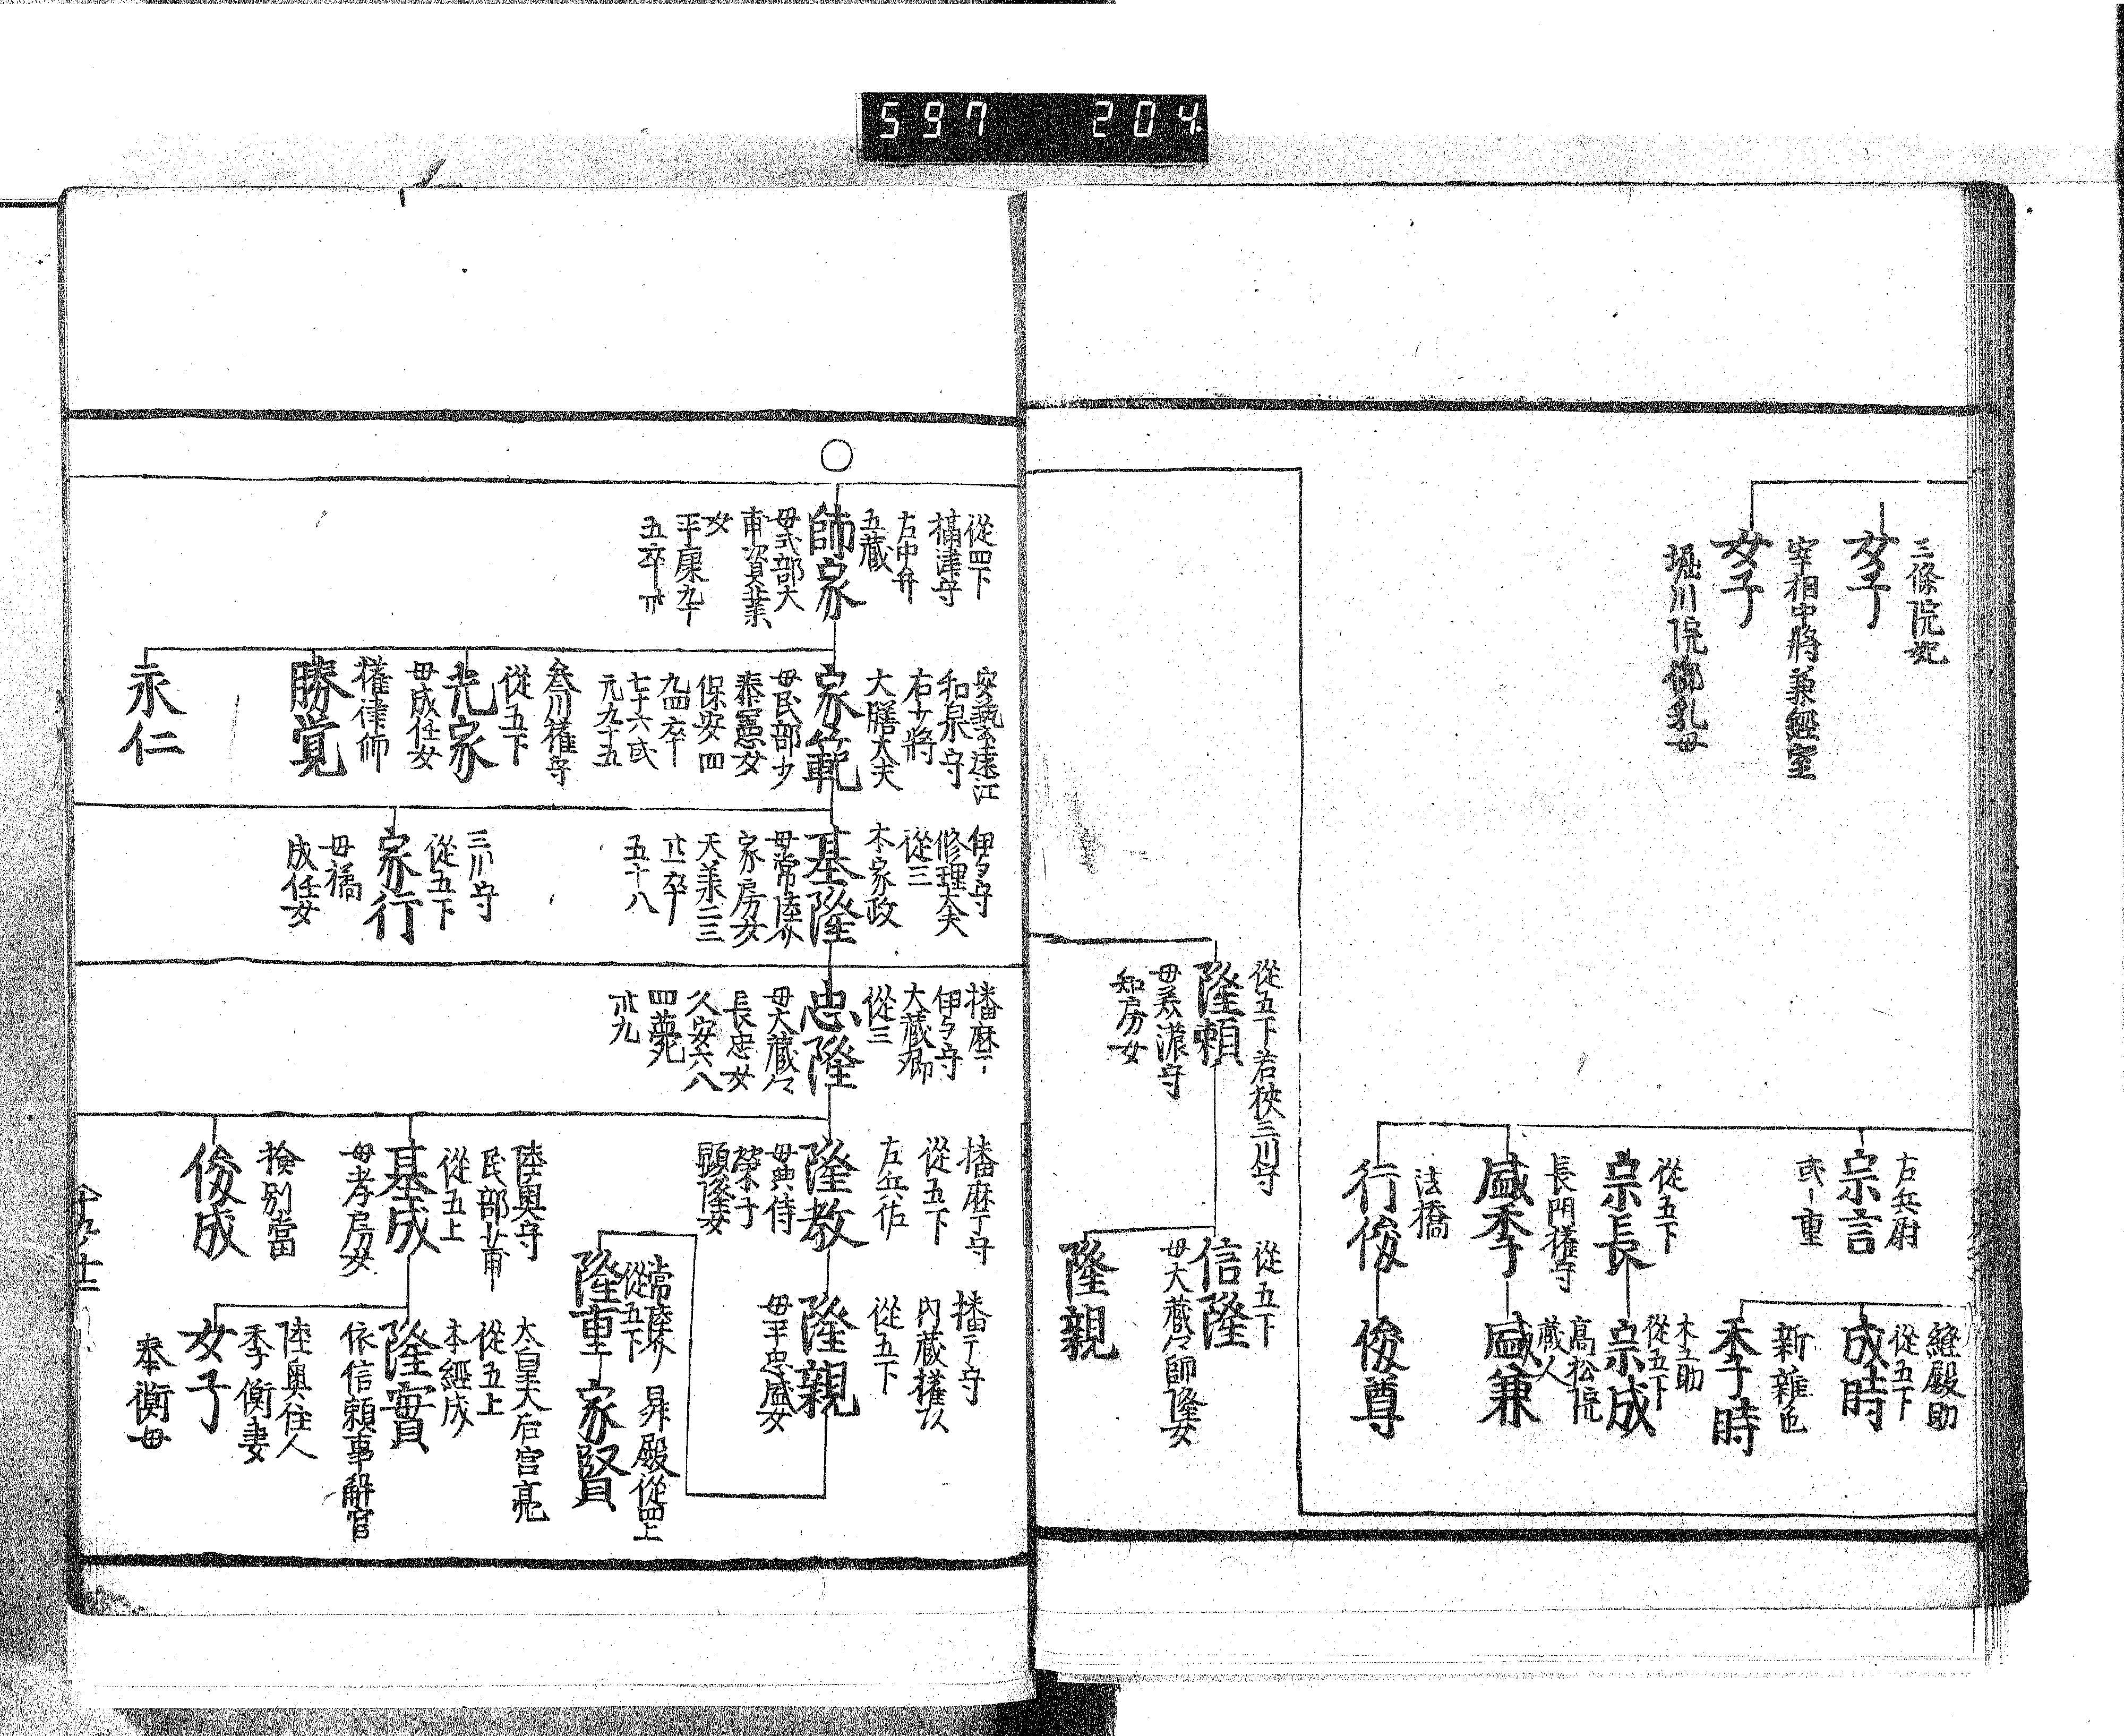 597 204
三條院妃
女子
宰相中將兼經室
女子
堀川院御乳母
右兵尉
宗言
或重
縫殿助
從五下
成時
新雜色
季時
從五下
宗長
木工助
從五下
宗成
長門權守
盛季
高松院
蔵人
盛兼
法橋
行俊
俊尊
從五下若狹三川守
隆頼
母美濃守
知房女
從五下
信隆
母大蔵々師隆女
隆親
○
從四下
攝津守
右中弁
五蔵
師家
母式部大
甫資業
女
平康九十
五卒
安藝守遠江
和泉守
右少將
大膳大夫
家範
母民部少
泰憲女
保安四
九四卒
七十六或
元九十五
叁川權守
從五下
光家
母成任女
權律師
勝覚
永仁
伊与守
修理大夫
從三
本家政
基隆
母常陸介
家房女
天兼二三
廿一卒
五十八
三川守
從五下
家行
母橘
成任女
播麻守
伊与守
大蔵卿
從三
忠隆
母大蔵々
長忠女
久安六八
四薨
卌九
播麻守
從五下
左兵佐
隆教
母典侍
榮子
顕隆女
播守
内蔵權頭
從五下
隆親
母平忠盛女
常陸介
從五下
隆重
昇殿從四上
家賢
陸奥守
民部少甫
從五上
基成
母孝房女
太皇大后宮亮
從五上
本經成
隆實
依信頼事解官
陸奥住人
季衡妻
女子
奉衡母
撿別當
俊成